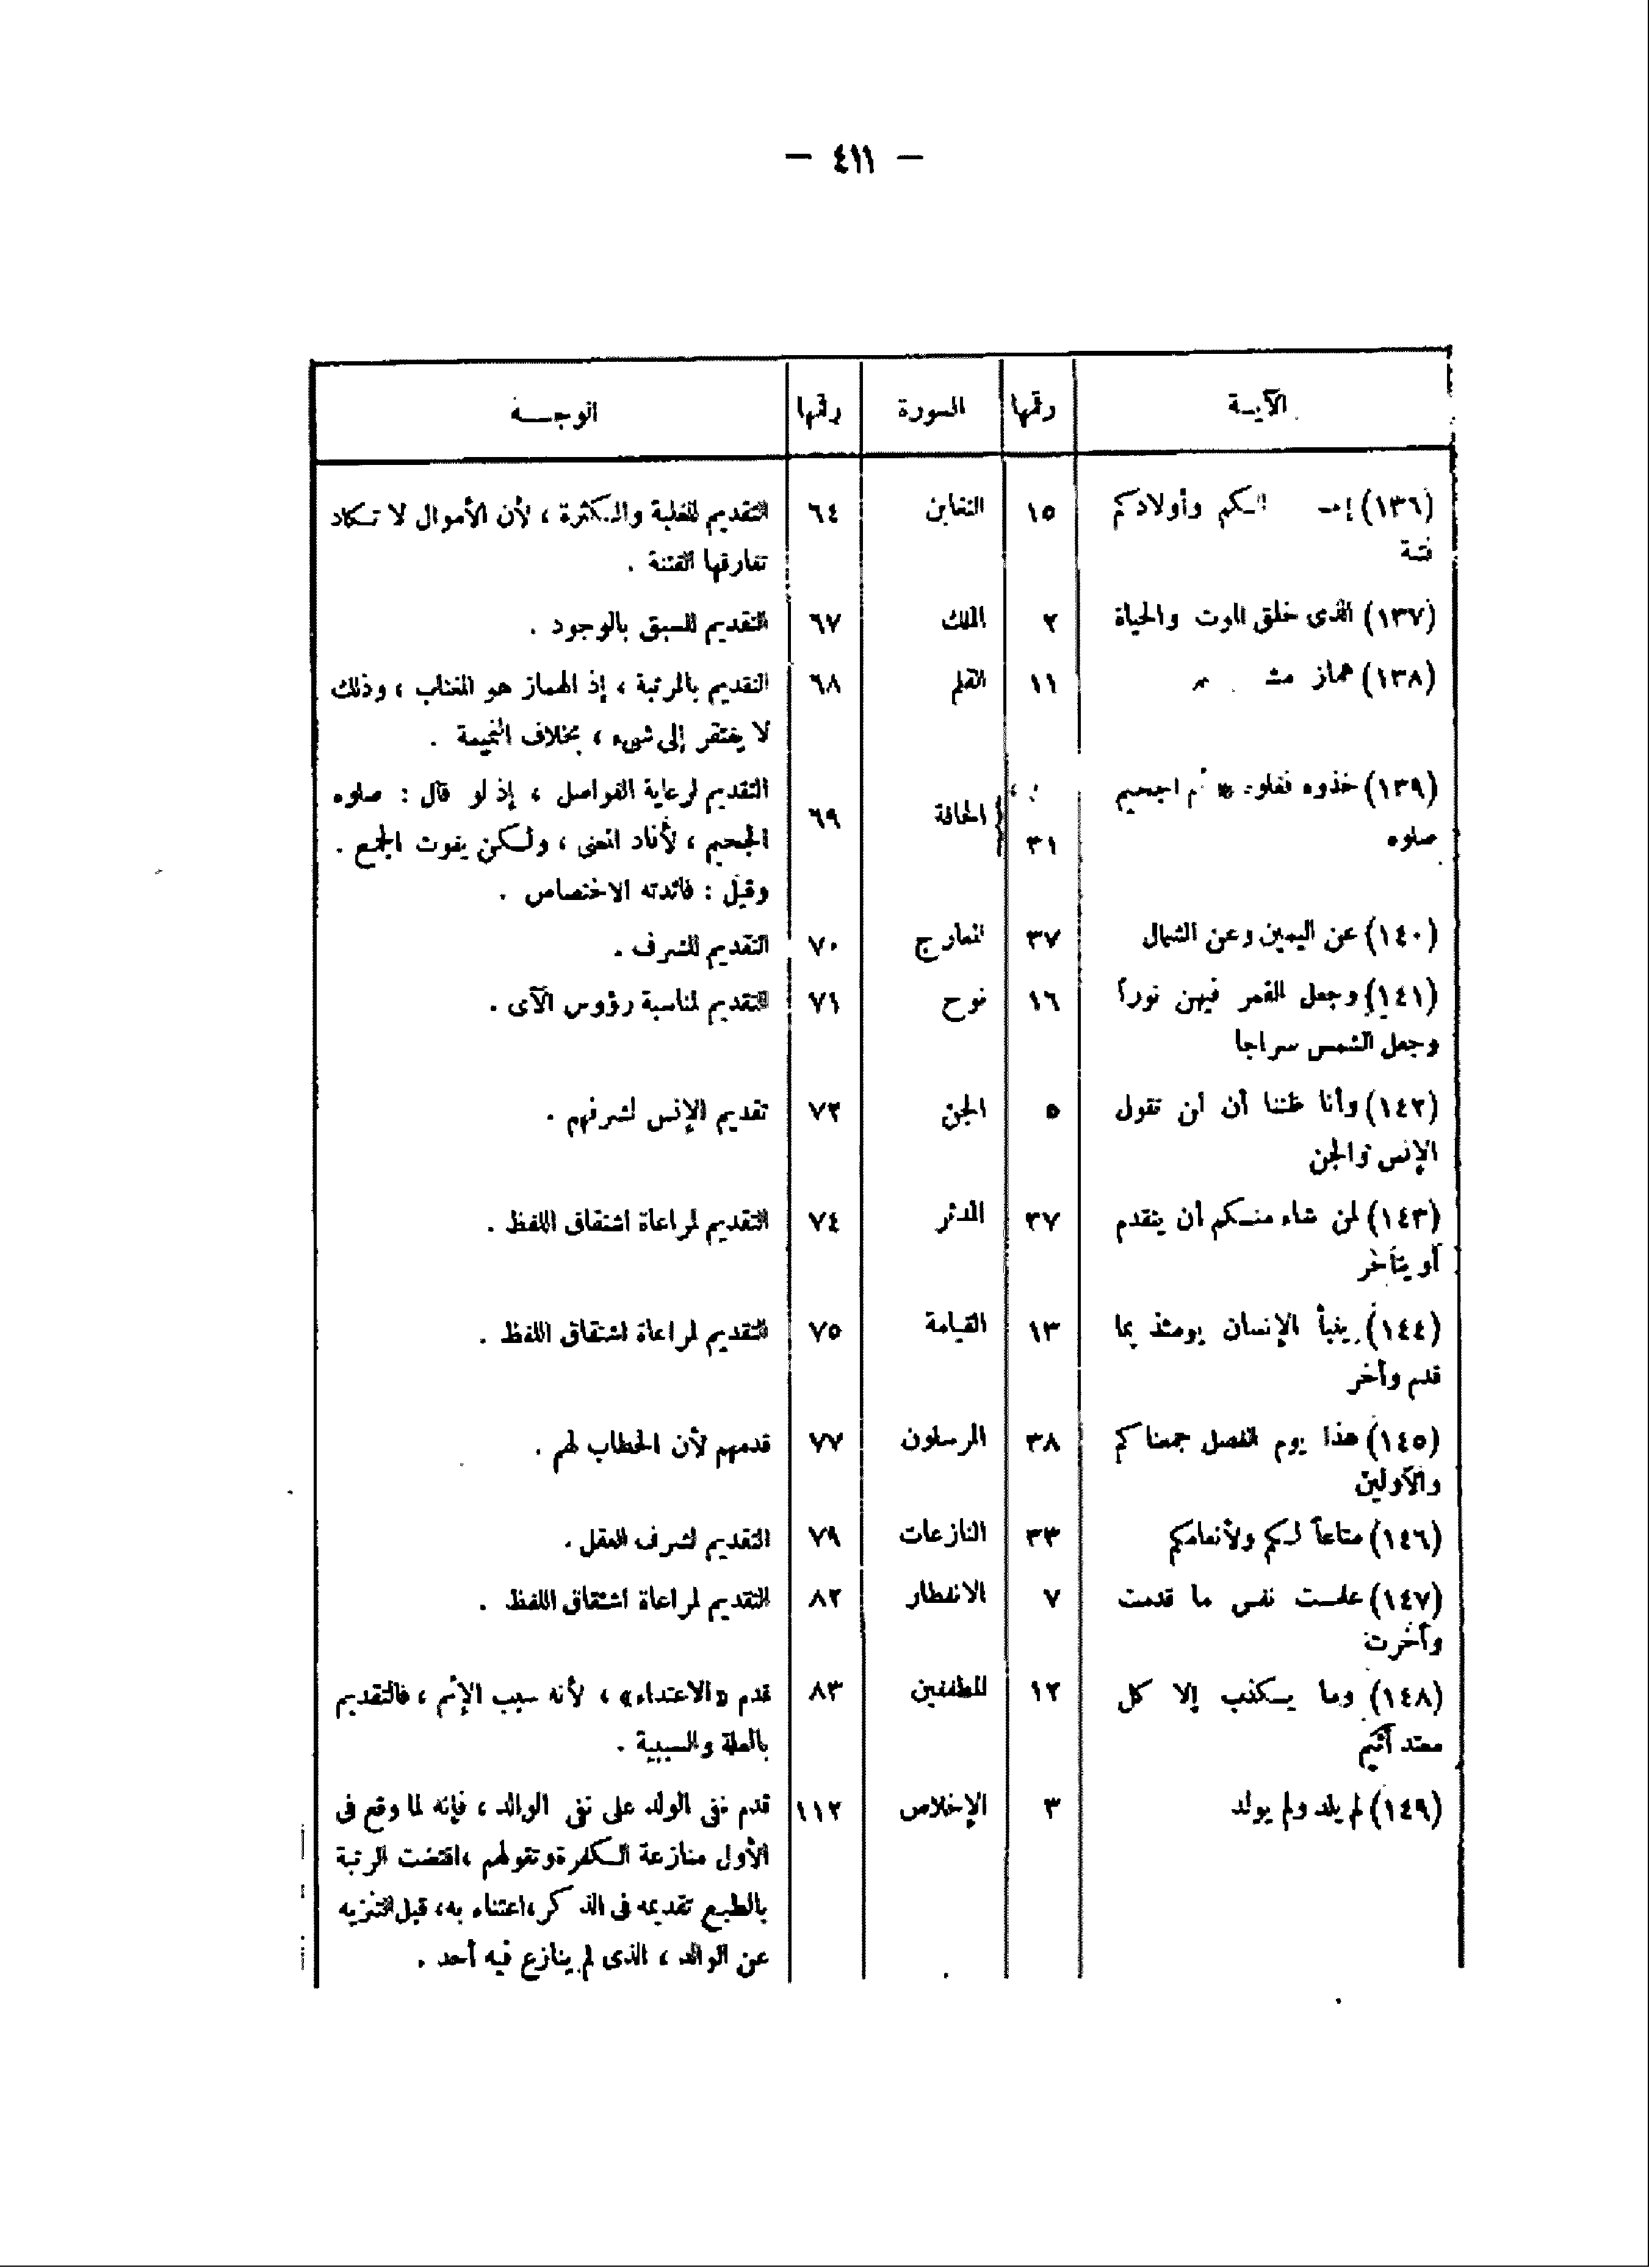 — ٤١١ —
الآيـة رقمها السورة رقمها الوجــه
(١٣٦) وأولادكم ١٥ التغابن ٦٤ التقديم للغلبة والـكثرة ، لأن الأموال لا تـكاد
فتنة تفارقها الفتنة .
(١٣٧) الذى خلق الموت والحياة ٢ الملك ٦٧ التقديم للسبق بالوجود .
(١٣٨) هماز ١١ القلم ٦٨ التقديم بالمرتبة ، إذ الهماز هو المغتاب ، وذلك
لا يفتقر إلى شىء ، بخلاف النميمة .
(١٣٩) خذوه فغلوه * ثم الجحيم الحاقة ٦٩ التقديم لرعاية الفواصل ، إذ لو قال : صلوه
صلوه ٣١ الجحيم ، لأفاد المعنى ، ولـكن يفوت الجمع .
وقيل : فائدته الاختصاص .
(١٤٠) عن اليمين وعن الشمال ٣٧ المعارج ٧٠ التقديم للشرف .
(١٤١) وجعل القمر فيهن نوراً ١٦ نوح ٧١ التقديم لمناسبة رؤوس الآى .
وجعل الشمس سراجا
(١٤٢) وأنا ظننا أن لن تقول ٥ الجن ٧٢ تقديم الإنس لشرفهم .
الإنس والجن
(١٤٣) لمن شاء منـكم أن يتقدم ٣٧ المدثر ٧٤ التقديم لمراعاة اشتقاق اللفظ .
أو يتأخر
(١٤٤) ينبأ الإنسان يومئذ بما ١٣ القيامة ٧٥ التقديم لمراعاة اشتقاق اللفظ .
قدم وأخر
(١٤٥) هذا يوم الفصل جمعناكم ٣٨ المرسلون ٧٧ قدمهم لأن الخطاب لهم .
والأولين
(١٤٦) متاعاً لـكم ولأنعامكم ٣٣ النازعات ٧٩ التقديم لشرف العقل .
(١٤٧) علمـت نفس ما قدمت ٧ الانفطار ٨٢ التقديم لمراعاة اشتقاق اللفظ .
وأخرت
(١٤٨) وما يـكذب إلا كل ١٢ المطففين ٨٣ قدم «الاعتداء» ، لأنه سبب الإثم ، فالتقديم
معتد أثيم بالعلة والسببية .
(١٤٩) لم يلد ولم يولد ٣ الإخلاص ١١٢ قدم نفى الولد على نفى الوالد ، فإنه لما وقع فى
الأول منازعة الـكفرة وتقولهم ، اقتضت الرتبة
بالطبع تقديمه فى الذكر ، اعتناء به ، قبل التنزيه
عن الوالد ، الذى لم ينازع فيه أحد .